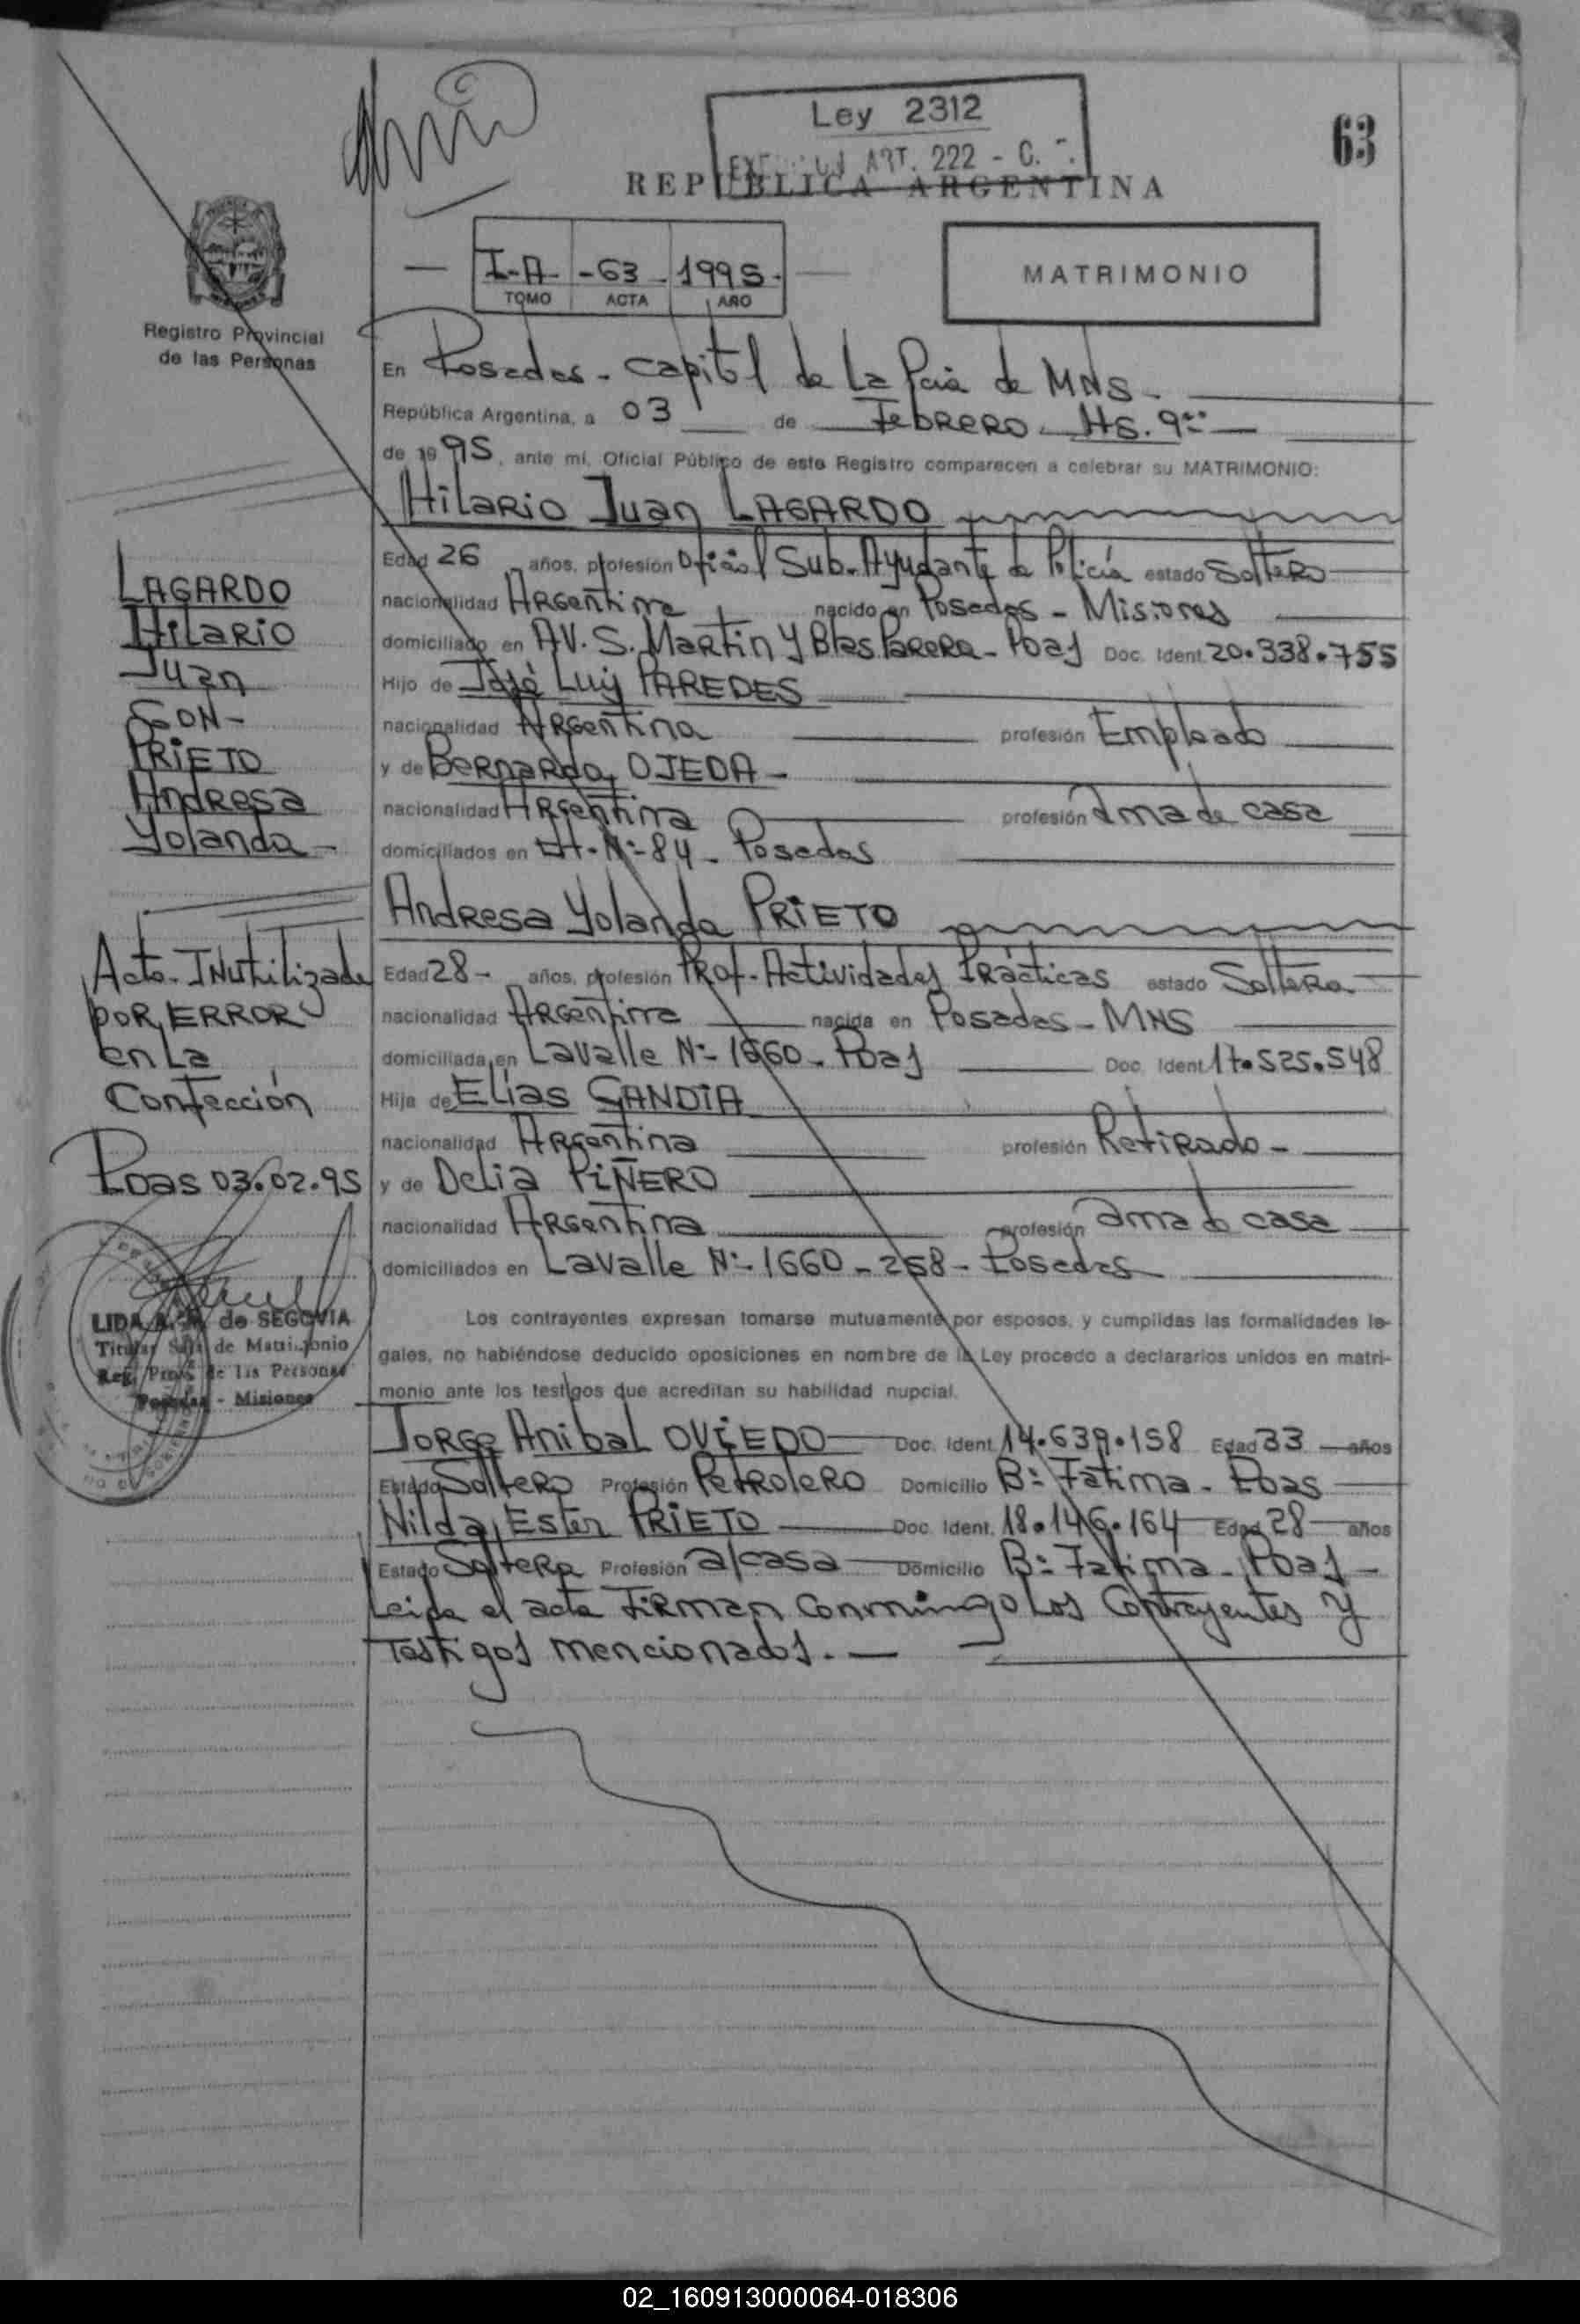 Ley 2312
ART. 222 - C.
63
REPUBLICA ARGENTINA
I-A - 63 - 1995.
TOMO ACTA AÑO
MATRIMONIO
Registro Provincial
de las Personas
En Posadas - Capital de La Pcia de MNS.
República Argentina, a 03 de Febrero Hs. 9
de 1995, ante mí, Oficial Público de este Registro comparecen a celebrar su MATRIMONIO:
Hilario Juan LAGARDO
Edad 26 años, profesión Oficial Sub-Ayudante de Policía estado Soltero
nacionalidad Argentina nacido en Posadas - Misiones
domiciliado en AV. S. Martin y Blas Parera - Pdas Doc. Ident. 20.338.755
Hijo de José Luis PAREDES
nacionalidad Argentina profesión Empleado
y de Bernarda OJEDA -
nacionalidad Argentina profesión ama de casa
domiciliados en Nº 84 - Posadas
Andresa Yolanda PRIETO
Edad 28 - años, profesión Prof. Actividades Prácticas estado Soltera
nacionalidad Argentina nacida en Posadas - MNS
domiciliada en Lavalle Nº 1660 - Pdas Doc. Ident. 17.525.548
Hija de Elias GANDIA
nacionalidad Argentina profesión Retirado -
y de Delia PIÑERO
nacionalidad Argentina profesión ama de casa
domiciliados en Lavalle Nº 1660 - 258 - Posadas
Los contrayentes expresan tomarse mutuamente por esposos, y cumplidas las formalidades le-
gales, no habiéndose deducido oposiciones en nombre de la Ley procedo a declararlos unidos en matri-
monio ante los testigos que acreditan su habilidad nupcial.
Jorge Anibal OVIEDO Doc. Ident. 14.639.158 Edad 33 años
Estado Soltero Profesión Petrolero Domicilio Bº Fatima - Pdas
Nilda Ester PRIETO Doc. Ident. 18.146.164 Edad 28 años
Estado Soltera Profesión a/casa Domicilio Bº Fatima - Pdas -
Leida el acta firman conmingo Los Contrayentes y
Testigos mencionados. -
LAGARDO
Hilario
Juan
CON -
PRIETO
Andresa
Yolanda -
Acta Inutilizada
por ERROR
en La
Confección
Pdas 03.02.95
LIDA de SEGOVIA
Titular Sala de Matrimonio
Reg. Prov. de las Personas
Posadas - Misiones
02_160913000064-018306